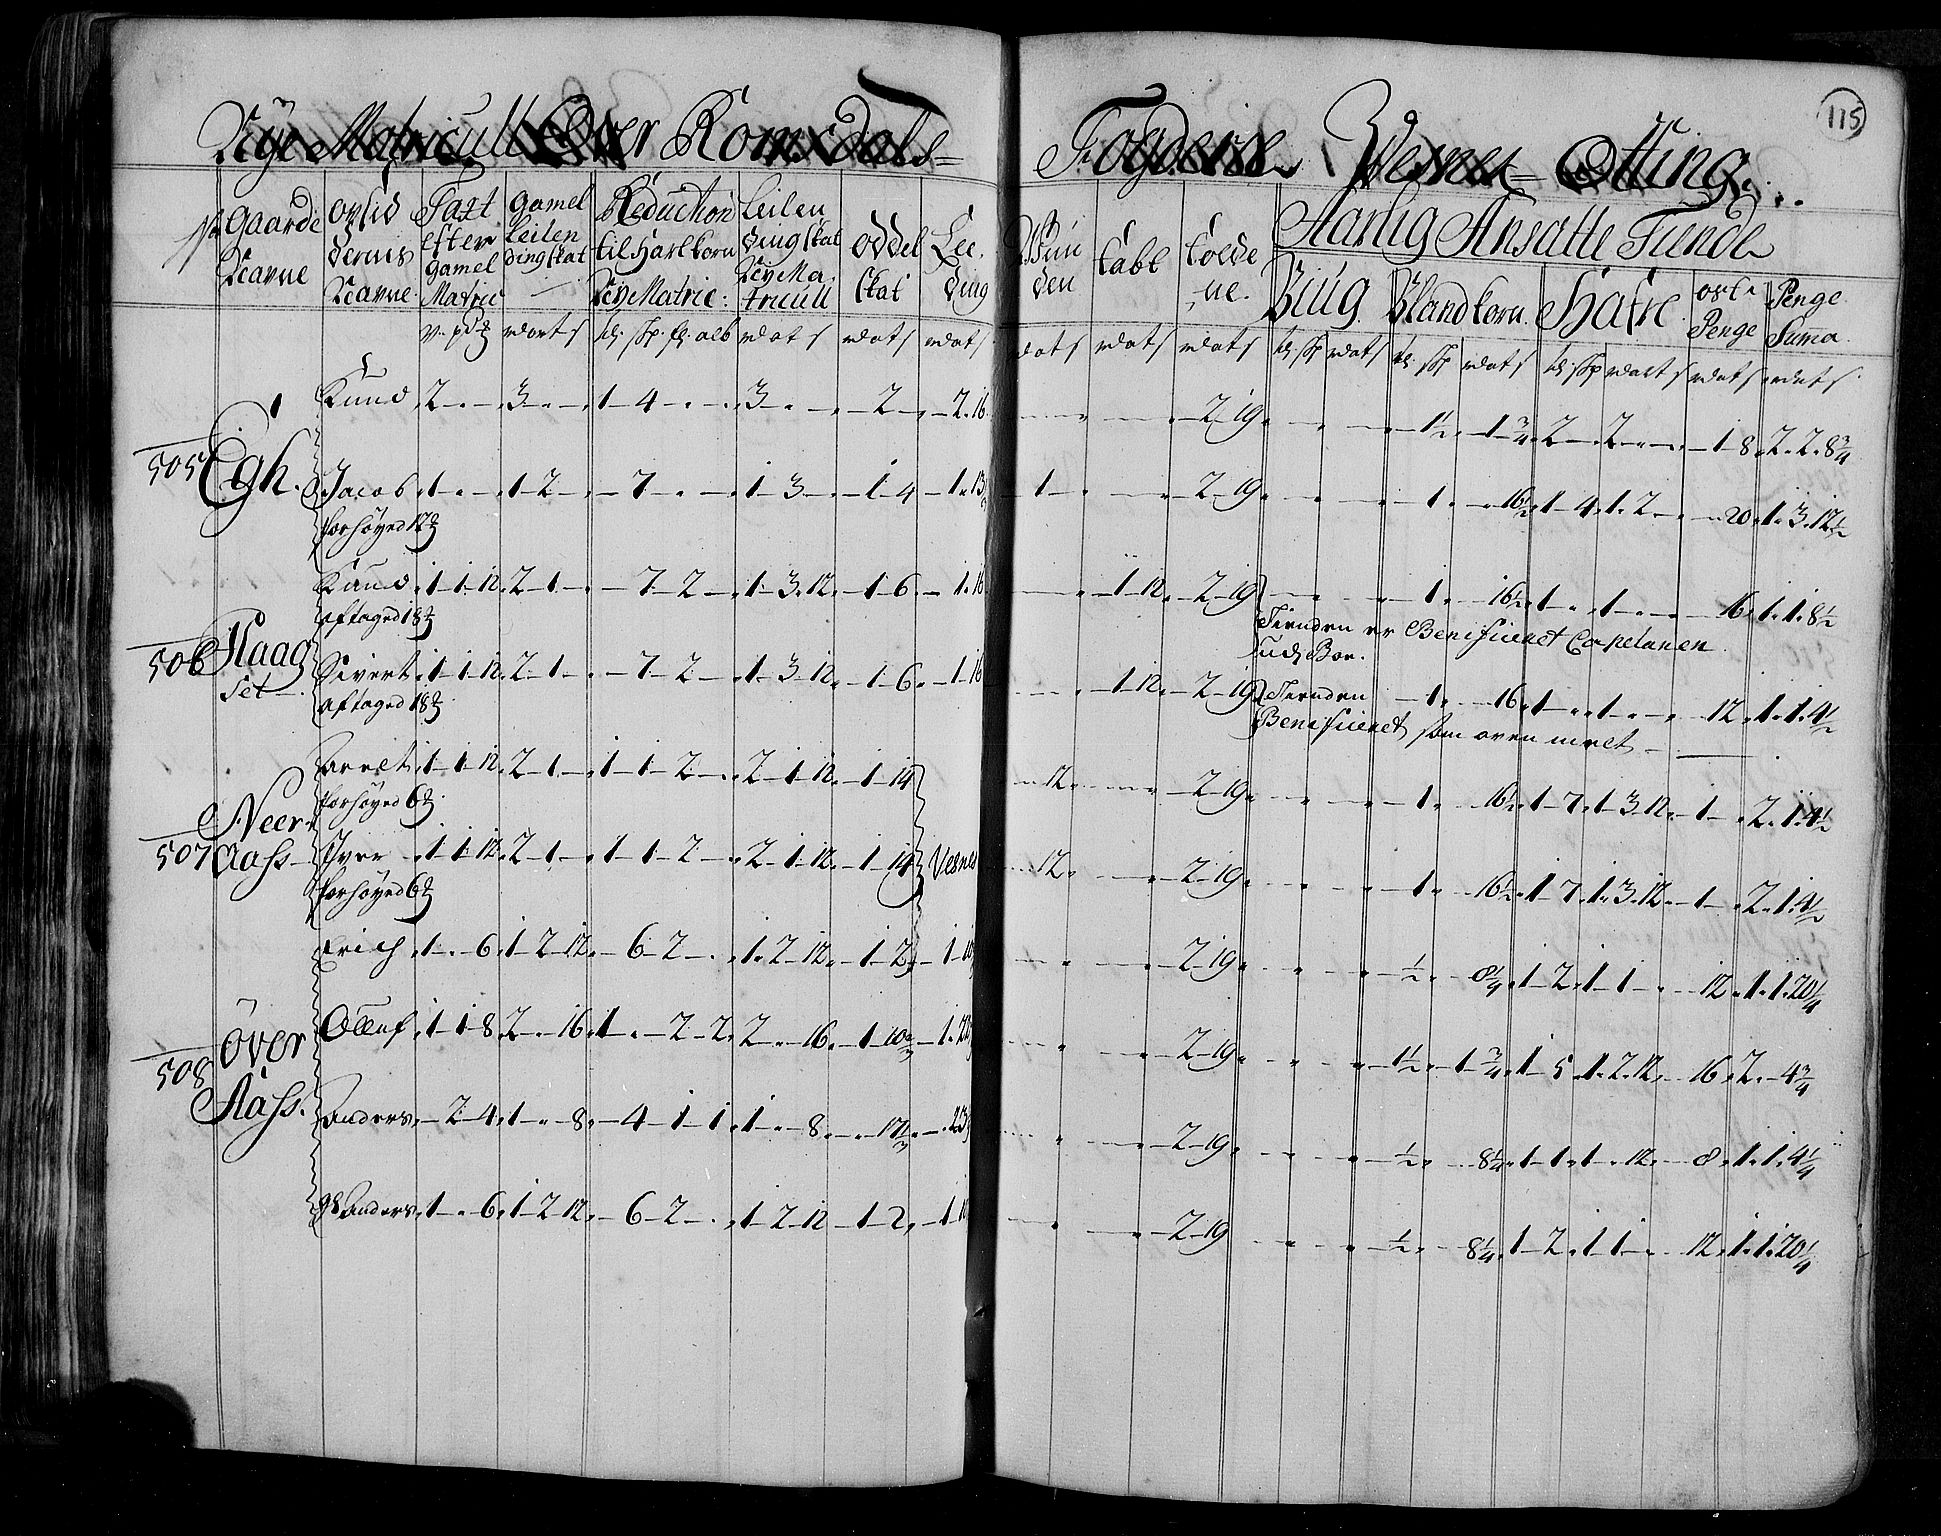 Nÿe Matricull Over Romsdals=
Fogderie Vesnes Otting
115
No Gaarde Navne | opsid dernis Navne | Taxt efter gamel Matric | gamel leilen dingskat | Reduction til Hartkorn Nye Matric: | leilen dingskat Nye Ma tricull | oddel skat | Lee ding
den | tabt | tolde ne. | Aarlig Ansatte Tiende
Biug | Bland korn. | Hafre | oste Penge | Penge Suma
Knud 2 - 3 - 1-4 - 3 - 2 - 2.16 | 2-19 - 1½ 1 ¾ 2 - 2 - 1-8 2.2.8¾
505 Egh. Jacob 1 - 1-2 - 7 - 1-3 - 1-4 - 1.13 | 1 - 2-19 - 1 - 16½ 1-4 1.2 - 20 1.3.12½
forhøyed 12
Knud 1-1-12 2-1 - 7-2 1-3-12 1-6 - 1.16 | 1-12 2-19 - 1 - 16½ 1 - 1 - 16 1.1.8½
aftaged 18
Tienden er Benificeret Capelanen
506 Haag set Sivert 1-1-12 2-1 - 7-2 1-3-12 1-6 1-16 | 1-12 2-19 Tienden 1 - 16 1 - 1 - 12 1.1.4½
aftaged 18
Benificeret som oven melt
1-1-12 2-1 1-1-2 2-1-12 1-14 | 12 - 2-19 - 1 - 16½ 1-7 1-3-12 1 - 2.1.4½
forhøyed 6
507 Neer Aass Iver 1-1-12 2-1 1-1-2 2-1-12 1-14 Vesnes | 12 - 2-19 - 1 - 16½ 1-7 1.3.12 1 - 2.1.4½
forhøyed 6
Erich 1 - 6 1-2-12 - 6-2 1-2-12 1-2 - 1-10 | 2-19 - ½ 8¼ 1-2 1-1 - 12 1.1.20¼
508 över Aass. Olluf 1-1-8 2 - 16 1 - 2-2 2 - 16 1-10⅔ 1.22 | 2-19 - 1½ 1 ¾ 1-5 1.2.12 16 2 - 4¾
Anders - 2-4 1 - 8 - 4-1-1 1 - 8 - 17⅓ - 23 | 2-19 - ½ 8¼ 1-1 1 - 12 - 8 1.1.4¼
Anders 1 - 6 1-2-12 - 6-2 1-2-12 1-2 1-10 | 2-19 - ½ 8¼ 1-2 1-1 - 12 1.1.20¼